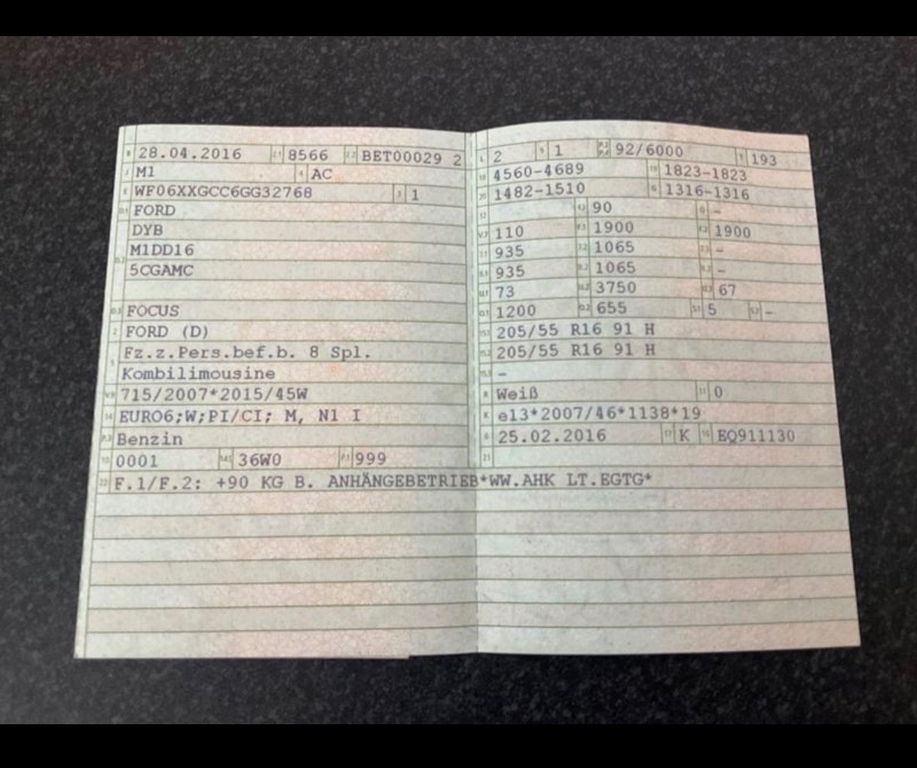 28.04.2016 8566 BET00029 2
M1 AC
WF06XXGCC6GG32768 1
FORD
DYB
M1DD16
5CGAMC
FOCUS
FORD (D)
Fz.z.Pers.bef.b. 8 Spl.
Kombilimousine
715/2007*2015/45W
EURO6;W;PI/CI; M, N1 I
Benzin
0001 36W0 999
2 1 92/6000 193
4560-4689 1823-1823
1482-1510 1316-1316
90 -
110 1900 1900
935 1065 -
935 1065 -
73 3750 67
1200 655 5 -
205/55 R16 91 H
205/55 R16 91 H
-
Weiß 0
e13*2007/46*1138*19
25.02.2016 K EQ911130
F.1/F.2: +90 KG B. ANHÄNGEBETRIEB*WW.AHK LT.EGTG*